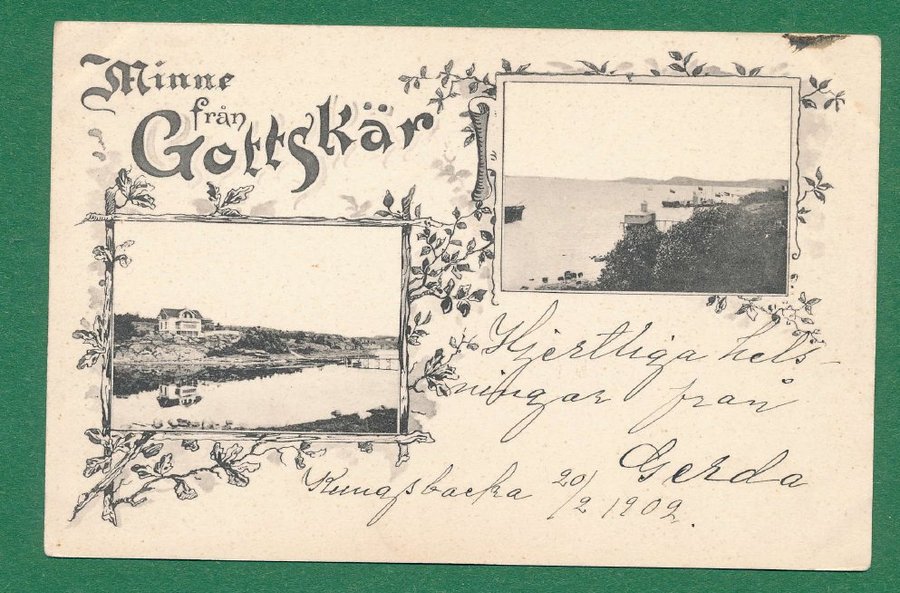 Minne
från
Gottskär
Hjertliga hels-
ningar från
Gerda
Kungsbacka 20/2 1902.